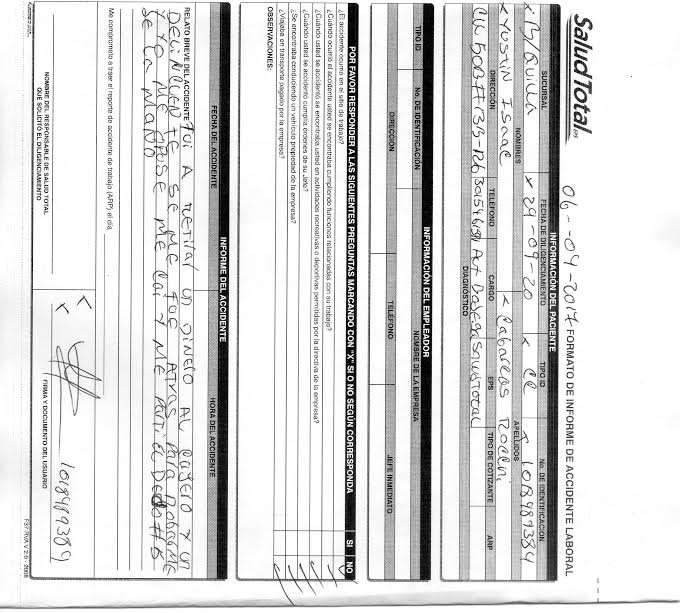 SaludTotal EPS
06--04-2017 FORMATO DE INFORME DE ACCIDENTE LABORAL
INFORMACIÓN DEL PACIENTE
SUCURSAL FECHA DE DILIGENCIAMIENTO TIPO ID No. DE IDENTIFICACIÓN
x B/Quilla x 29-09-20 x CC x 1018489384
NOMBRES APELLIDOS
x YUSTIN ISAAC x Cabarcas
DIRECCIÓN TELÉFONO CARGO EPS TIPO DE COTIZANTE ARP
SaludTotal
DIAGNÓSTICO
INFORMACIÓN DEL EMPLEADOR
TIPO ID No. DE IDENTIFICACIÓN NOMBRE DE LA EMPRESA
DIRECCIÓN TELÉFONO JEFE INMEDIATO
POR FAVOR RESPONDER A LAS SIGUIENTES PREGUNTAS MARCANDO CON "X" SI O NO SEGÚN CORRESPONDA SI NO
¿El accidente ocurrió en el sitio de trabajo?
¿Cuándo ocurrió el accidente usted se encontraba cumpliendo funciones relacionadas con su trabajo?
¿Cuándo usted se accidentó se encontraba usted en actividades recreativas o deportivas permitidas por la directiva de la empresa?
¿Cuándo usted se accidentó cumplía órdenes de su Jefe?
¿Se encontraba conduciendo un vehículo propiedad de la empresa?
¿Viajaba en transporte pagado por la empresa?
OBSERVACIONES:
INFORME DEL ACCIDENTE
FECHA DEL ACCIDENTE HORA DEL ACCIDENTE
RELATO BREVE DEL ACCIDENTE Fui A Retirar un DiNero AL Cajero Y un
DeLiNcueNte Se Me Fue Atras Para RobarMe
Y Yo Me Me Cai Y Me Parti eL DeDo #5
De La MaNo
Me comprometo a traer el reporte de accidente de trabajo (ARP) el día
x
x 1018489384
NOMBRE DEL RESPONSABLE DE SALUD TOTAL FIRMA Y DOCUMENTO DEL USUARIO
QUE SOLICITÓ EL DILIGENCIAMIENTO